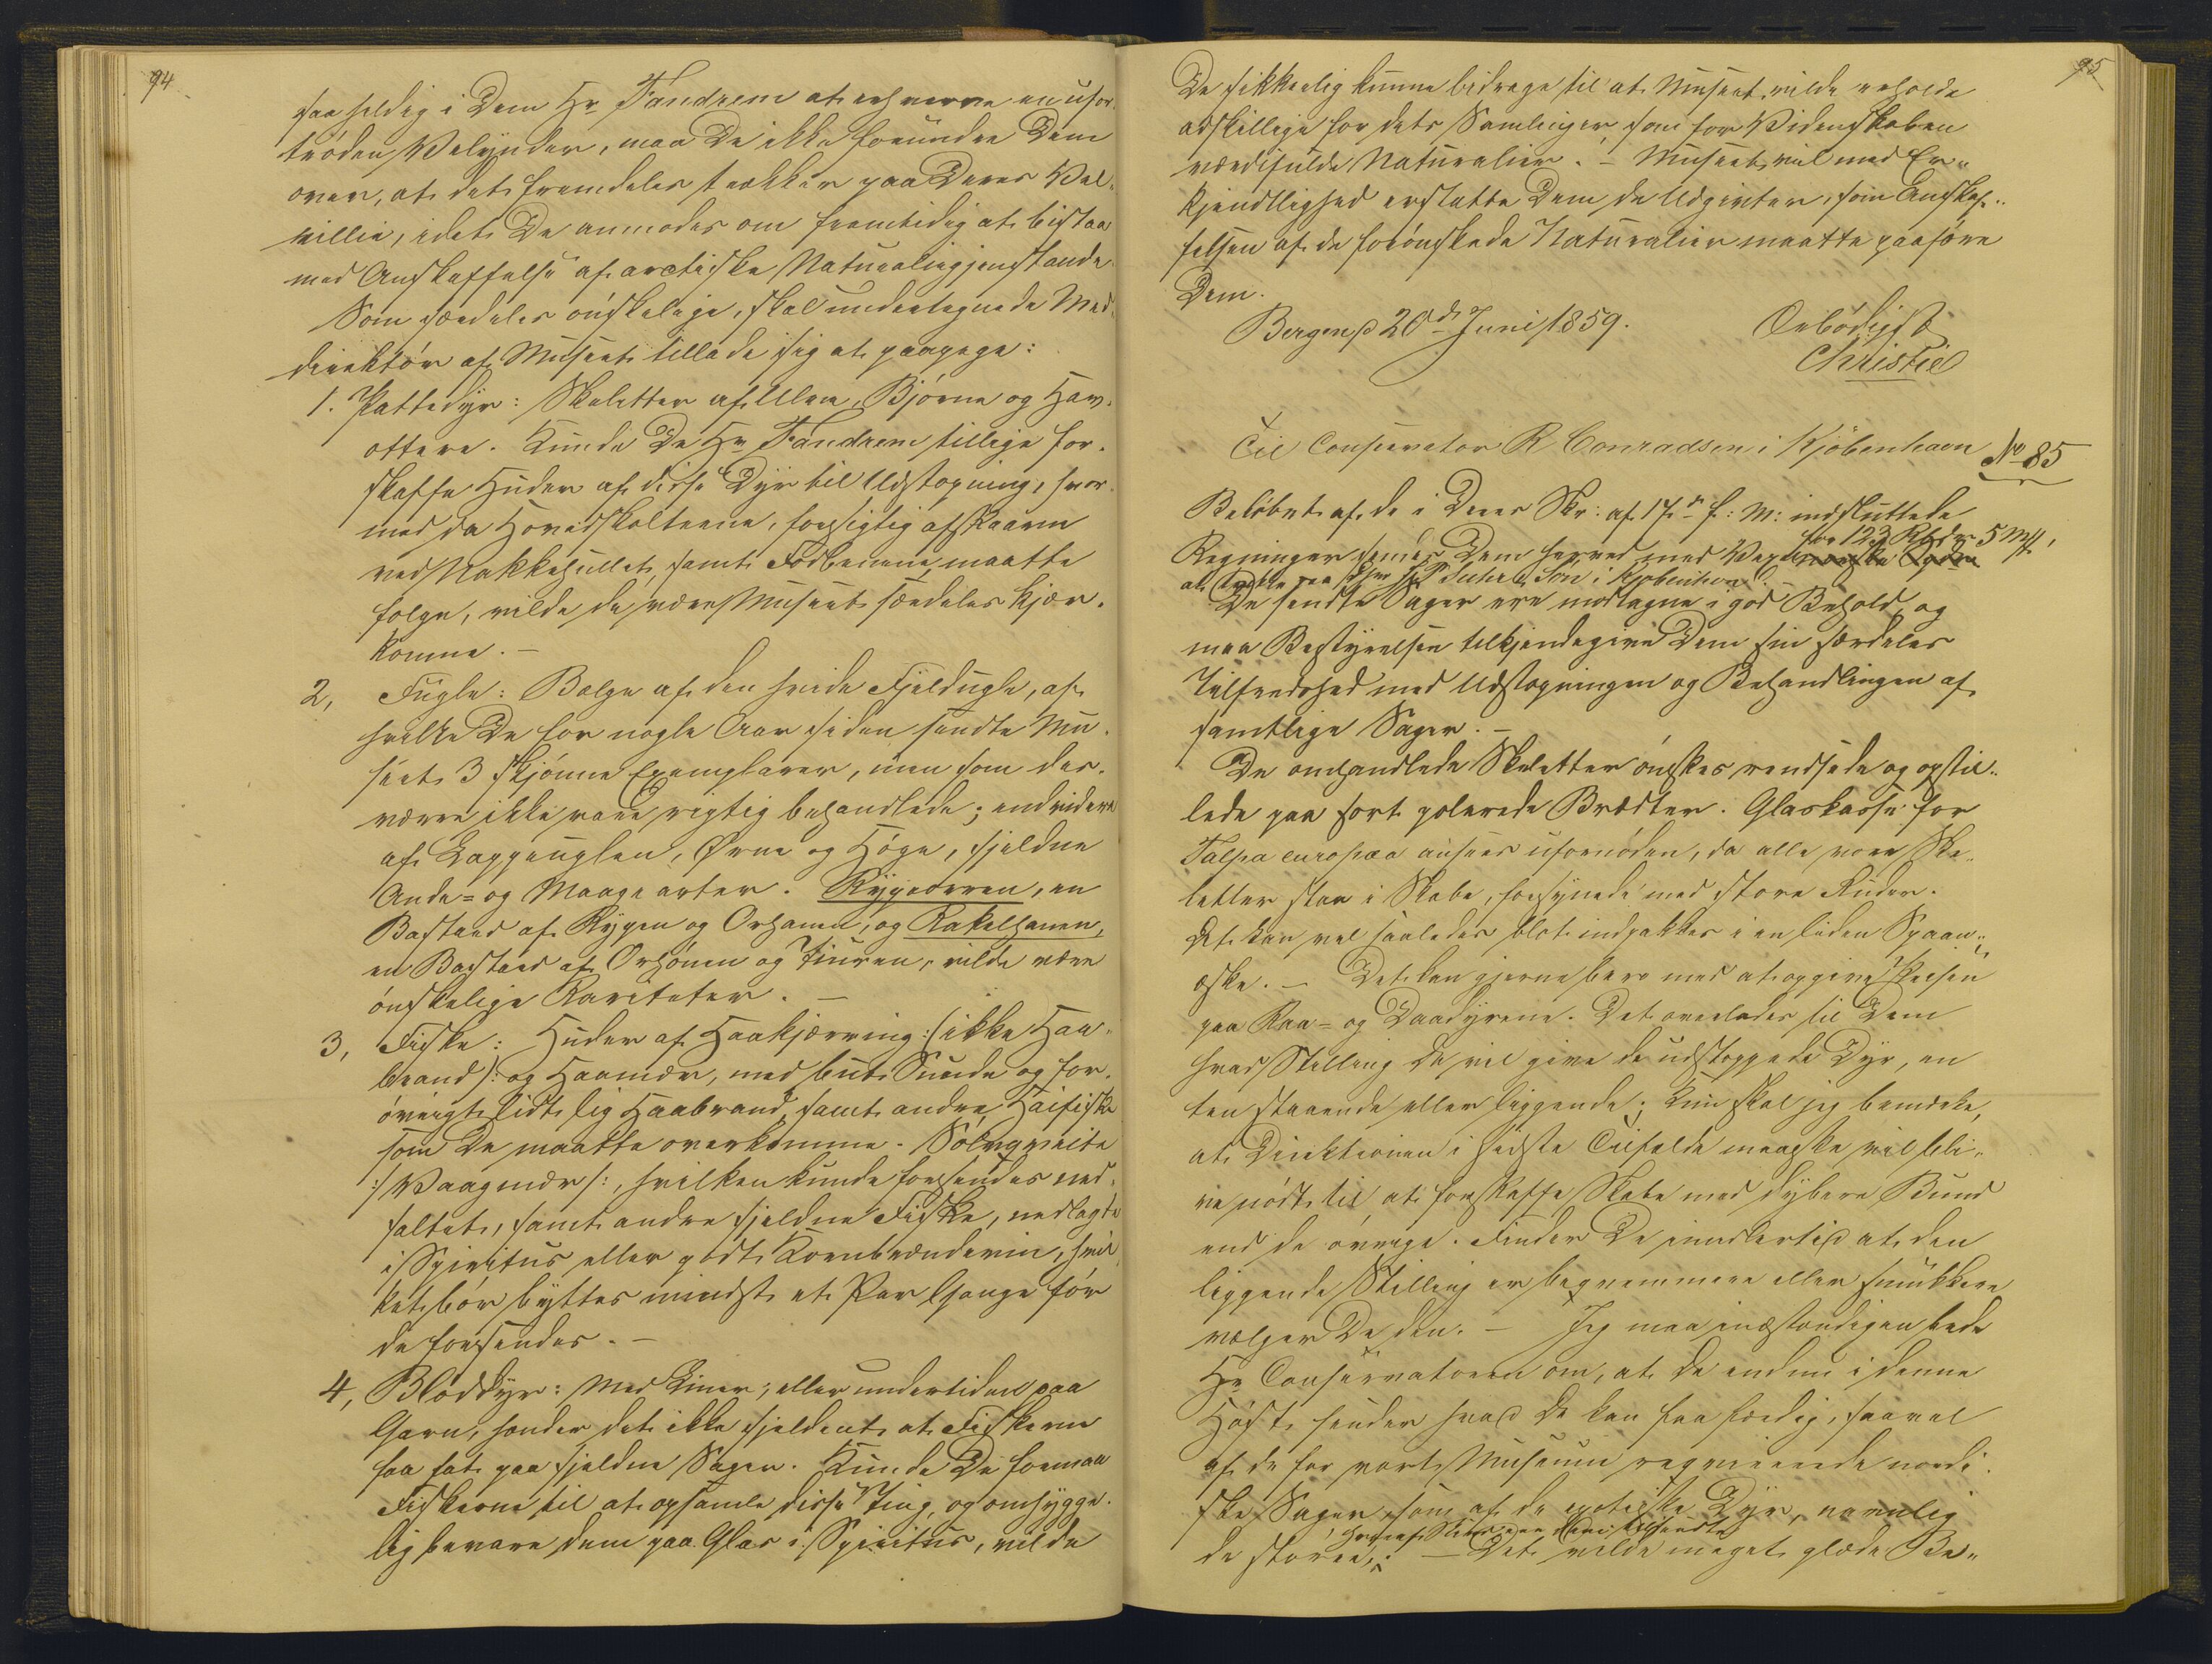 94
saa heldig i Dem Hr Fandrem at erhverve en ufor-
tröden Velynder, maa De ikke forundre Dem
over, at det fremdeles trækker paa Deres Vel-
villie, idet De anmodes om fremtidig at bistaa
med Anskaffelse af arctiske Naturaliegjenstande.
Som særdeles önskelige, skal undertegnede Med-
direktör af Museet tillade sig at paapege:
1. Pattedyr: Skeletter af Ulve, Björne og Hav-
ottere. Kunde De Hr Fandrem tillige for-
skaffe Huder af disse Dyr til Udstopning, hvor-
med da Hovedskallerne, forsigtig afskaarne
ved Nakkehullet, samt Fodbenene maatte
følge, vilde de være Museet særdeles kjær-
komne. –
2, Fugle: Bælge af den hvide Fjeldugle, af
hvilke De for nogle Aar siden sendte Mu-
seet 3 skjönne Exemplarer, men som des-
værre ikke vare rigtig behandlede; endvidere
af Lappeuglen, Ørne og Höge, sjeldne
Ande= og Maagearter. Rypeorren, en
Bastard af Rypen og Orhanen, og Rakelhanen,
en Bastard af Orhönen og Tiuren, vilde være
önskelige Rariteter. –
3, Fiske: Huder af Haakjærring :(ikke Haa-
brand): og Haamær, med but Snude og for-
övrigt lidt lig Haabrand, samt andre Haifiske
som De maatte overkomme. Sölvqveite
:/ Vaagmær /:, hvilken kunde forsendes ned-
saltet, samt andre sjeldne Fiske, nedlagte
i Spiritus eller godt Kornbrændeviin, hvil-
ket bör byttes mindst et Par Gange för
de forsendes. –
4, Bloddyr: Med Liner, eller undertiden paa
Garn, hænder det ikke sjeldent at Fiskerne
faa fat paa sjeldne Sager. Kunde De formaa
Fiskerne til at opsamle disse Ting, og omhygge-
lig bevare dem paa Glas i Spiritus, vilde
95
De sikkerlig kunne bidrage til at Museet vilde erholde
adskillige for dets Samlinger som for Videnskaben
værdifulde Naturalier. – Museet vil med Er-
kjendtlighed erstatte Dem de Udgivter, som Anskaf-
felsen af de forönskede Naturalier maatte paaføre
Dem.
Bergen, d 20de Juni 1859. Ærbödigst
Christie
Til Conservator R Conradsen i Kjöbenhavn No 85
Belöbet af de i Deres Skr: af 17de f: M: indsluttede
for 123 Rbdr 5 Mk,
Regninger sendes Dem herved med Vexel
at trække paa Suhr & Sön i Kjöbenhavn.
De sendte Sager ere modtagne i god Behold, og
maa Bestyrelsen tilkjendegive Dem sin særdeles
Tilfredshed med Udstopningen og Behandlingen af
samtlige Sager. –
De omhandlede Skeletter önskes rendsede og opstil-
lede paa sort polerede Brædter. Glaskasse for
Talpa europæa ansees ufornöden, da alle vore Ske-
letter staa i Skabe, forsynede med store Ruder.
Det kan vel saaledes blot indpakkes i en liden Spaan-
æske. – Det kan gjerne bero med at opgive Prisen
paa Raa= og Daadyrene. Det overlades til Dem
hvad Stilling De vil give de udstoppede Dyr, en-
ten staaende eller liggende; kun skal jeg bemærke,
at Direktionen i sidste Tilfælde maaske vil bli-
ve nödt til at forskaffe Skabe med dybere Bund
end de övrige. Finder De imidlertid at den
liggende Stilling er beqvemmere eller smukkere
vælger De den. – Jeg maa indstændigen bede
Hr Conservatoren om, at De endnu i denne
Höst sender hvad De kan faa færdig, saavel
af de for vort Museum reqvirerede nordi-
ske Sager, som af de exotiske Dyr, navnlig
de större, – Det vilde meget glæde Be-